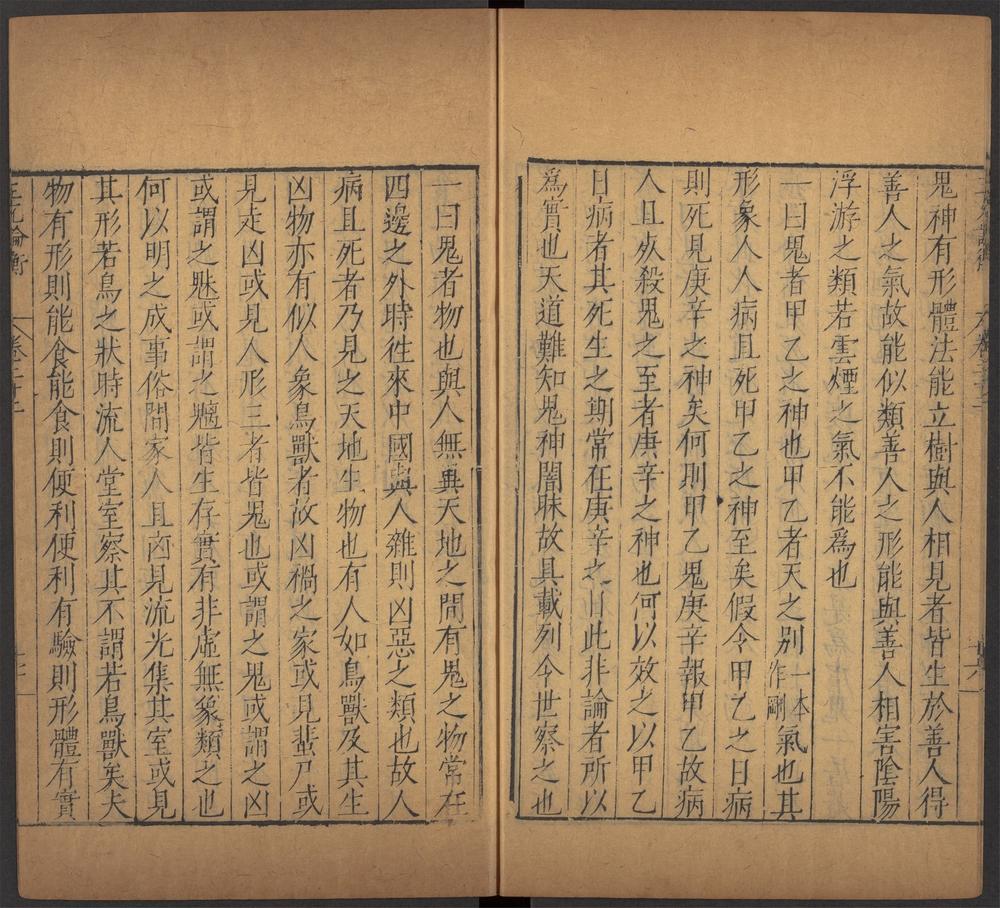 鬼神有形體法能立樹與人相見者皆生於善人得
善人之氣故能似類善人之形能與善人相害陰陽
浮游之類若雲煙之氣不能為也
一曰鬼者甲乙之神也甲乙者天之別一本作剛氣也其
形象人人病且死甲乙之神至矣假令甲乙之日病
則死見庚辛之神矣何則甲乙鬼庚辛報甲乙故病
人且死殺鬼之至者庚辛之神也何以效之以甲乙
日病者其死生之期常在庚辛之日此非論者所以
為實也天道難知鬼神闇昧故具載列令世察之也
一曰鬼者物也與人無異天地之間有鬼之物常在
四邊之外時徃來中國與人雜則凶惡之類也故人
病且死者乃見之天地生物也有人如鳥獸及其生
凶物亦有似人象鳥獸者故凶禍之家或見蜚尸或
見走凶或見人形三者皆鬼也或謂之鬼或謂之凶
或謂之魅或謂之魑皆生存實有非虛無象類之也
何以明之成事俗間家人且凶見流光集其室或見
其形若鳥之狀時流人堂室察其不謂若鳥獸矣夫
物有形則能食能食則便利便利有驗則形體有實
王充論衡 卷二十二